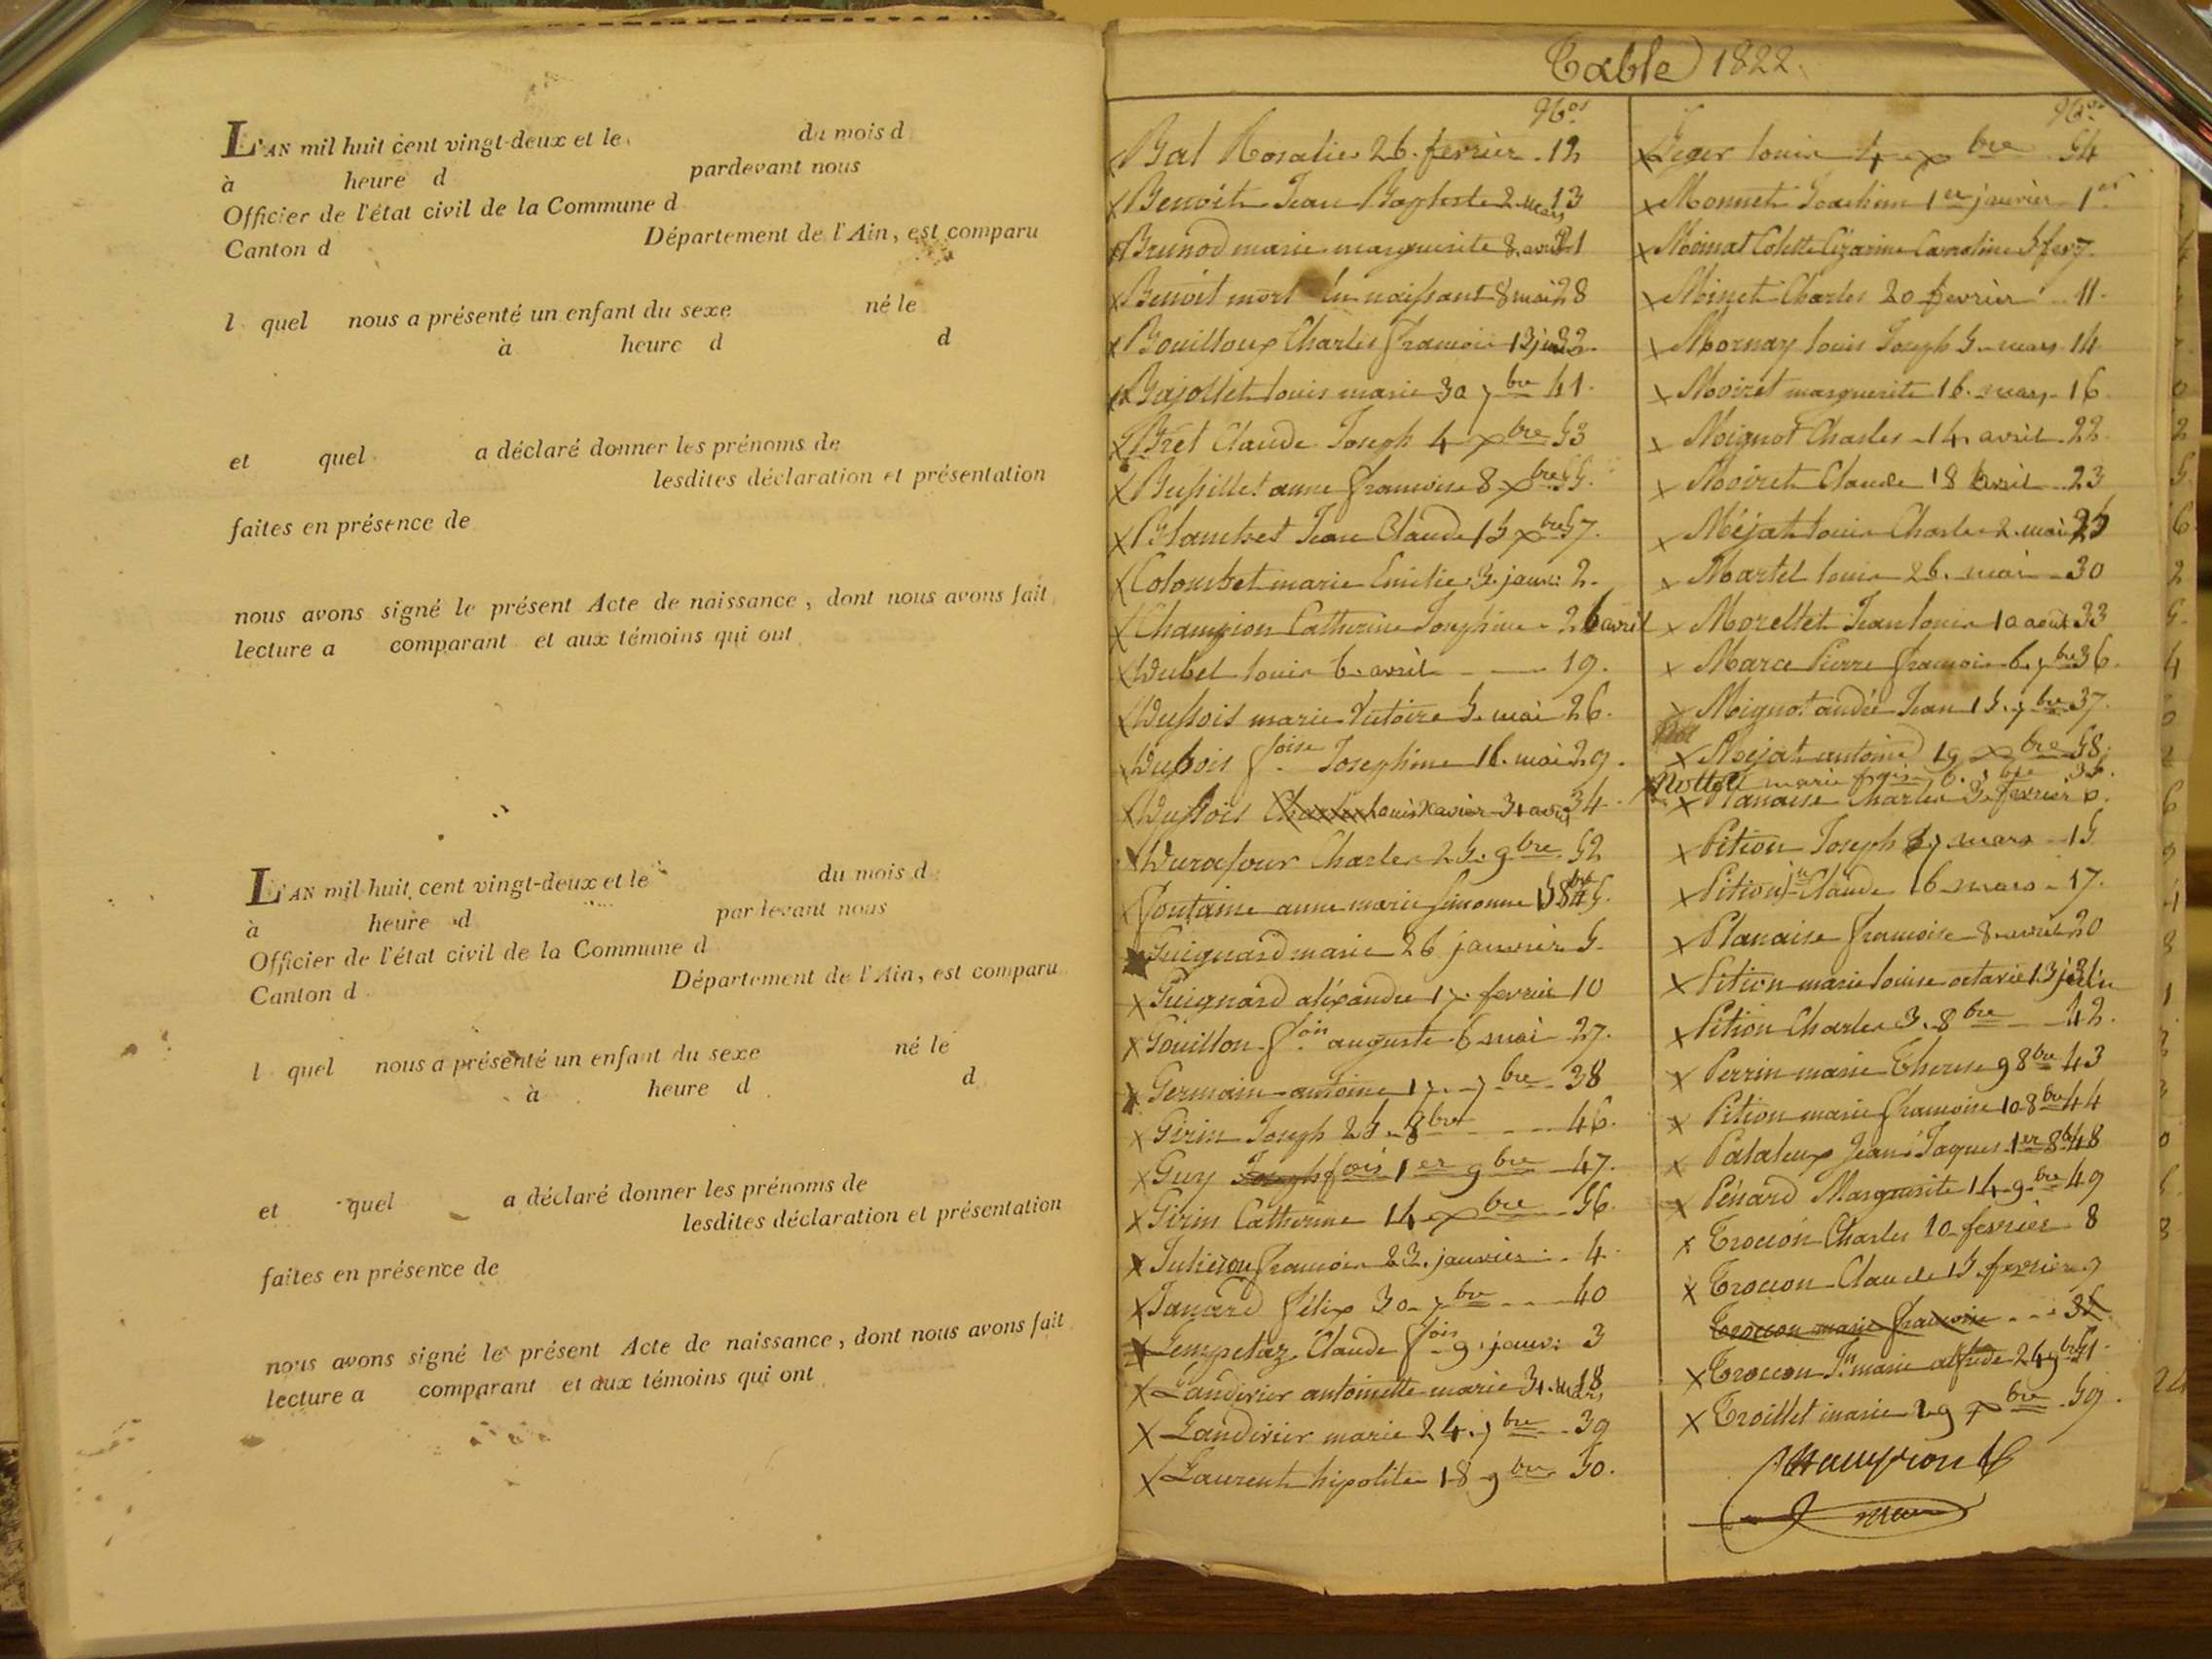 L'AN mil huit cent vingt-deux et le du mois d
à heure d pardevant nous
Officier de l'état civil de la Commune d
Canton d Département de l'Ain, est comparu
l quel nous a présenté un enfant du sexe né le
à heure d d
et quel a déclaré donner les prénoms de
lesdites déclaration et présentation
faites en présence de
nous avons signé le présent Acte de naissance, dont nous avons fait
lecture a comparant et aux témoins qui ont
L'AN mil huit cent vingt-deux et le du mois d
à heure d pardevant nous
Officier de l'état civil de la Commune d
Canton d Département de l'Ain, est comparu
l quel nous a présenté un enfant du sexe né le
à heure d d
et quel a déclaré donner les prénoms de
lesdites déclaration et présentation
faites en présence de
nous avons signé le présent Acte de naissance, dont nous avons fait
lecture a comparant et aux témoins qui ont
Table 1822.
Nos
Bal Rosalie 26. fevrier. 12
Benoit Jean Baptiste 2 mars 13
Brunod marie marguerite 8. avril 21
Benoit mort en naissant 8 mai 28
Bouilloux Charles francois 13 32
Bajollet louis marie 30 7bre 41.
Bret Claude Joseph 4 xbre 53
Bussillet anne francoise 8 xbre 55.
Blanchet Jean Claude 15 xbre 57.
Colombet marie Emilie 3. janv: 2.
Champion Catherine Josephine 26 avril
Dubel louis 6. avril 19.
Dubois marie Victoire 5. mai 26.
Dubois foise Josephine 16. mai 29.
Dubois Charles louis Xavier 31 34
Durafour Charles 25. 9bre 52
fontaine anne marie simonne 15 8bre 45.
Guignard marie 26 janvier 5.
Guignard aléxandre 17. fevrier 10
Gouillon fois auguste 6 mai 27.
Germain antoine 17. 7bre 38
Girin Joseph 25. 8bre 46.
Guy Joseph fois 1er 9bre 47.
Girin Catherine 14 xbre 56.
francois 23. janvier 4.
Janard félix 30. 7bre 40
Lempetaz Claude fois 9. janv: 3
Landirier antoinette marie 31. mars 18
Landirier marie 24. 7bre 39
Laurent hipolite 18 9bre 50.
Nos
Leger louis 4 xbre 54
Monnet Joachim 1er janvier 1er
Moinat Colette Cézarine Caroline 5 fev 7.
Minet Charles 20 fevrier 11.
Mornay louis Joseph 5. mars 14
Moiret marguerite 16. mars 16
Moignot Charles 14 avril 22.
Moiret Claude 18 avril 23
Méjat louis Charles 2. mai 25
Martel louis 26. mai 30
Morellet Jean louis 10 aout 33
Marce Pierre francois 6. 7bre 36.
Moignot andré Jean 15. 7bre 37.
Méjat antoine 19 xbre 58.
Nottet marie fçoise 6. 7bre 35.
Planaise Charles 3. fevrier 6.
Pition Joseph 7 mars 15
Pition Claude 16 mars 17.
Planaise francoise 8. avril 20
Pition marie louise octavie 13 juin
Pition Charles 3. 8bre 42.
Perrin marie Therese 9 8bre 43
Pition marie francoise 10 8bre 44
Pataleux Jean Jaques 1er 48
Pénard Marguerite 14. 9bre 49
Trocion Charles 10 fevrier 8
Trocion Claude 15 fevrier 9
Trocion marie francoise 35
Trocion marie alfrede 24 9bre 51.
Troillet marie 29 xbre 59.